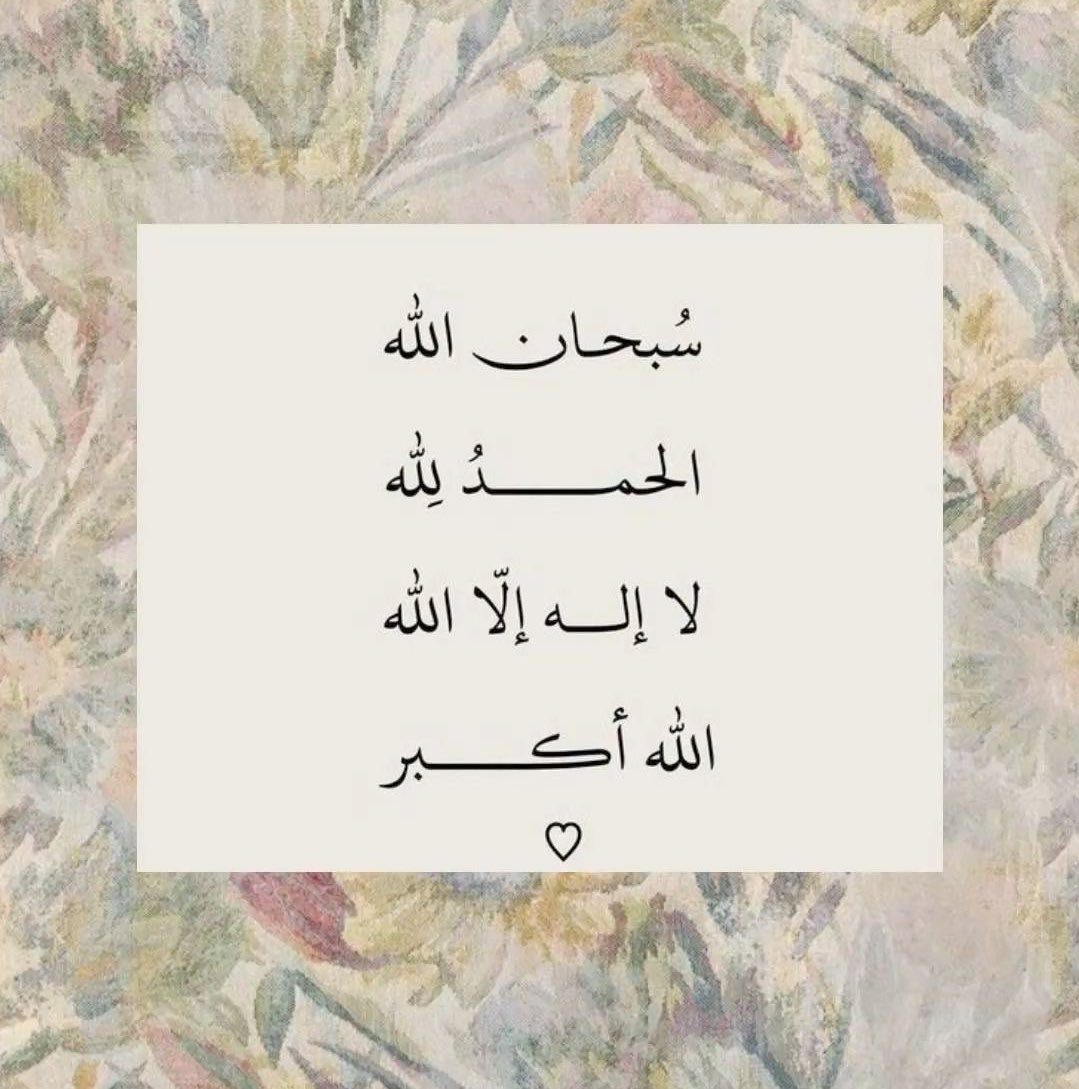 سُبحان الله
الحمدُ لِله
لا إله إلّا الله
الله أكبر
♡